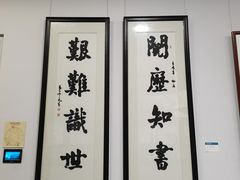 閱歷知書
艱難識世